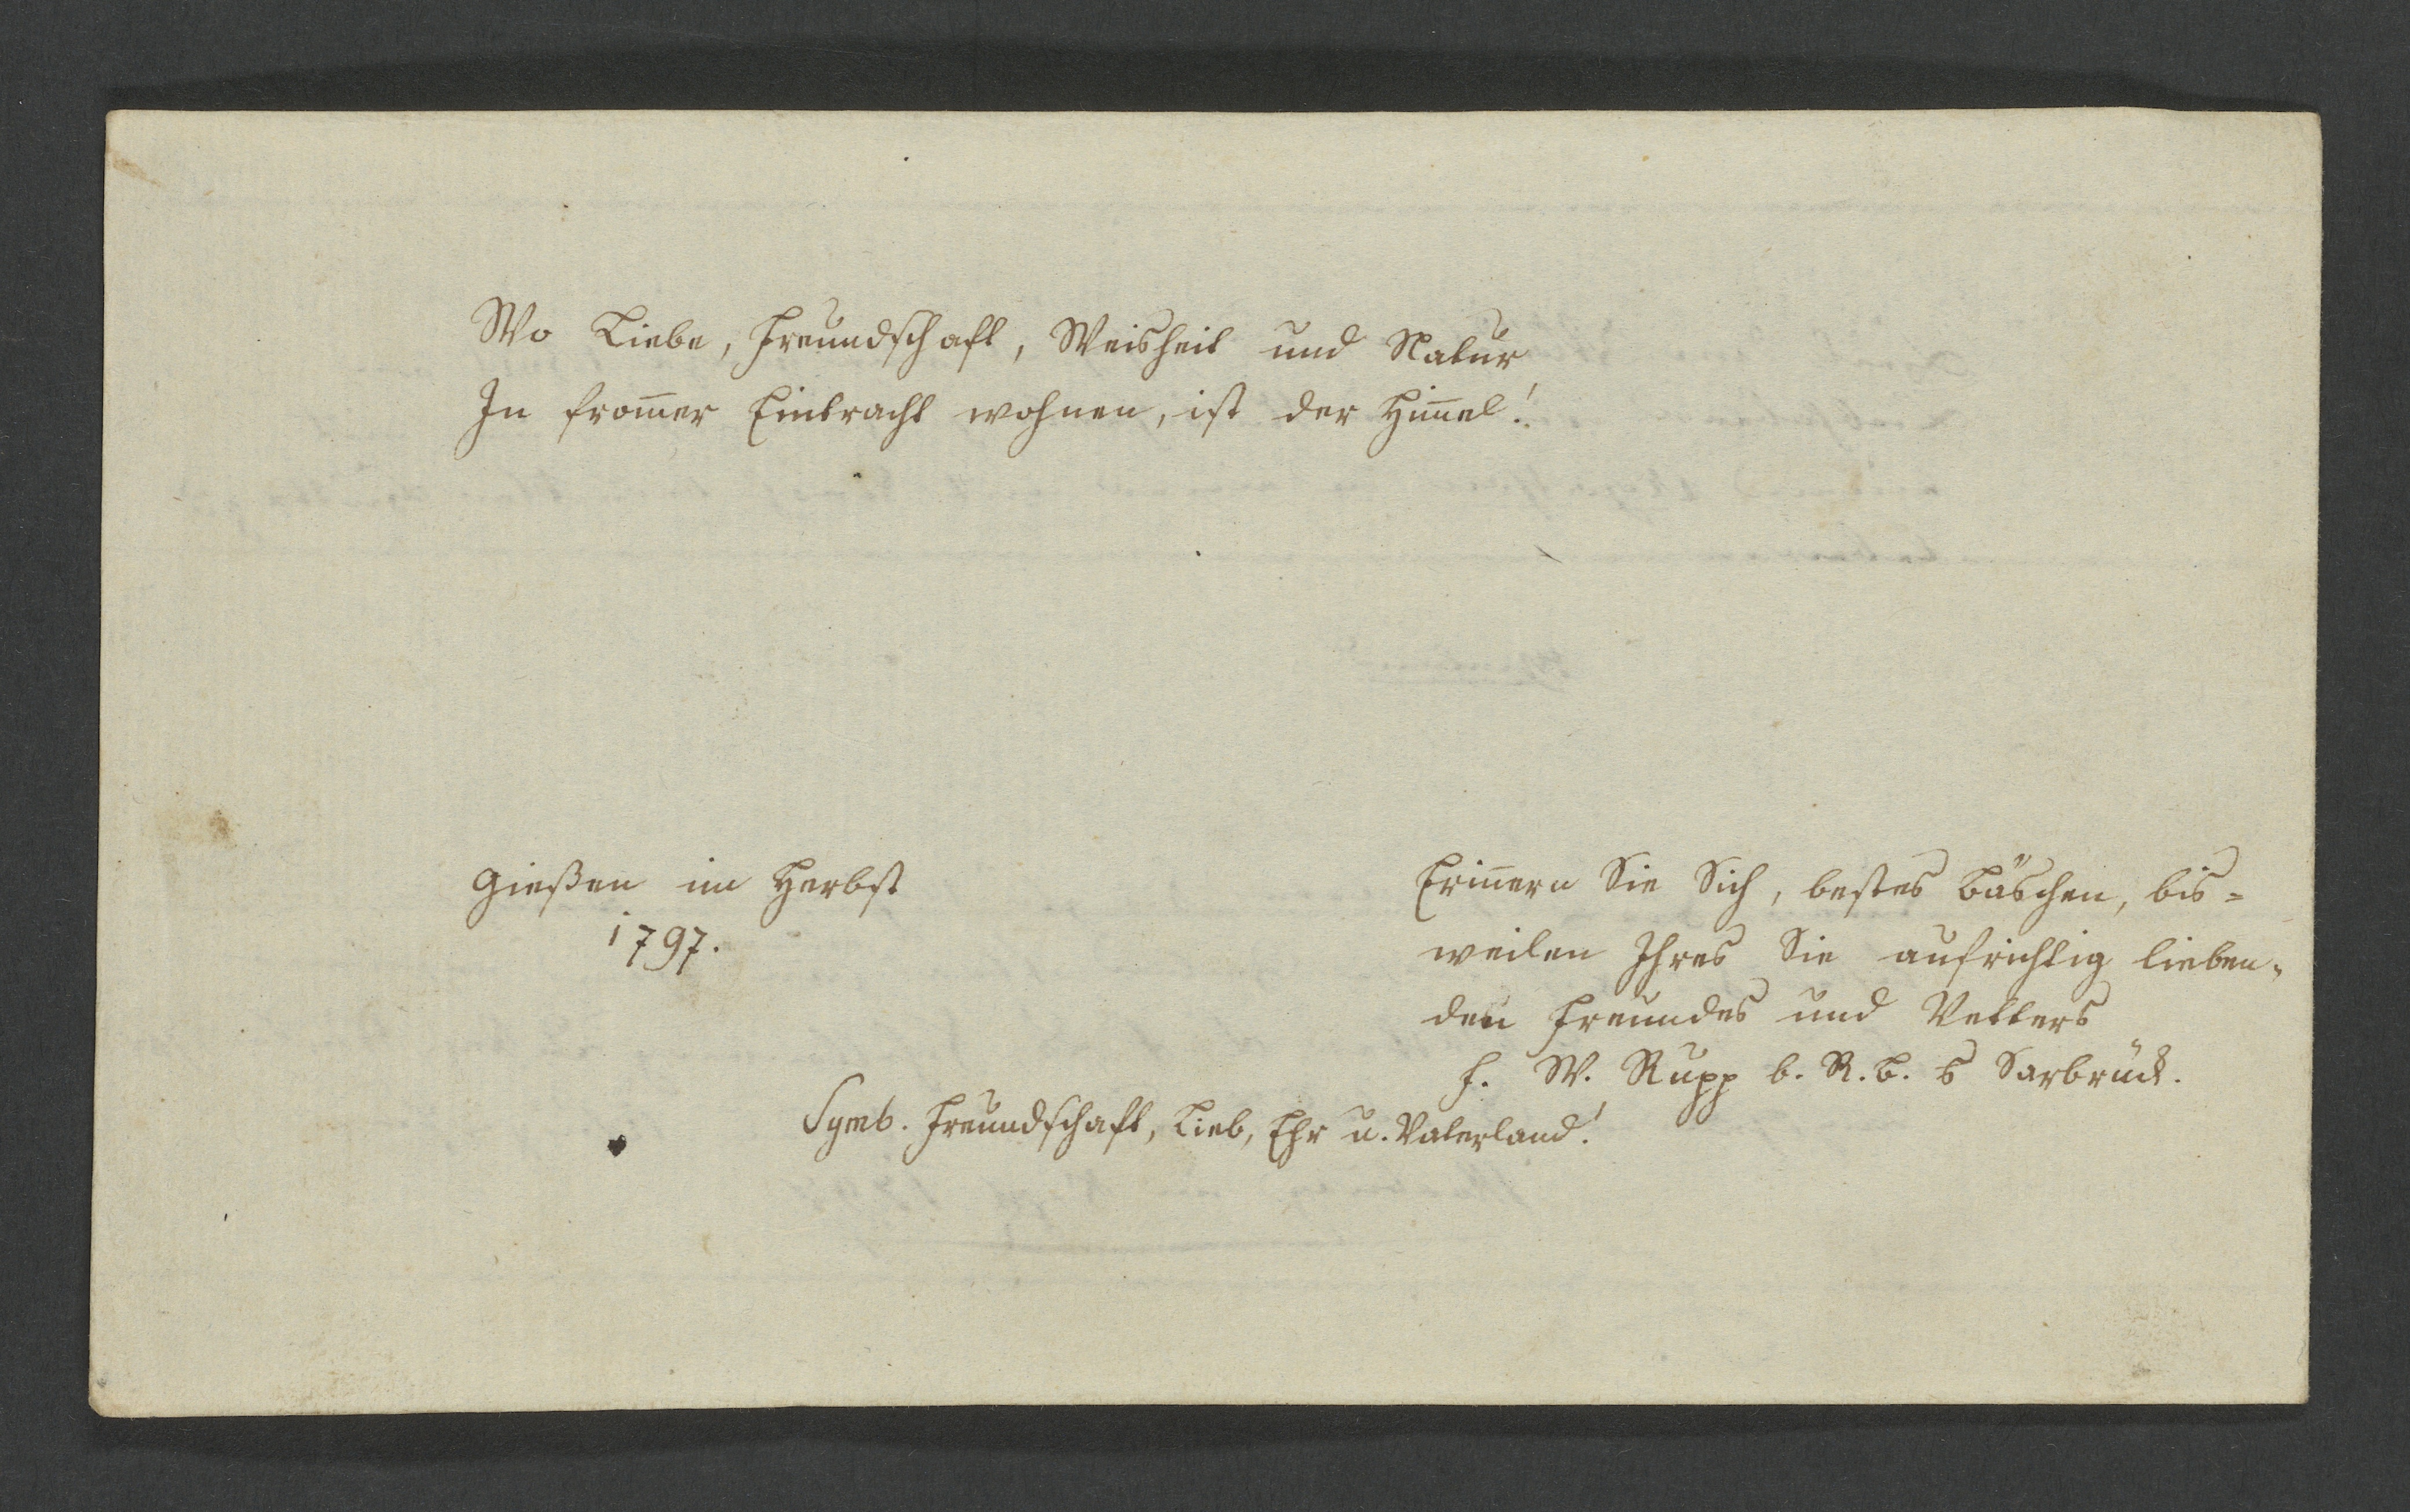 Wo Liebe, Freundschaft, Weisheit und Natur
In from̅er Eintracht wohnen, ist der Him̅el!
Gießen im Herbst
1797.
Erin̅ern Sie Sich, bestes Bäschen, bis=
weilen Ihres Sie aufrichtig lieben=
den Freundes und Vetters
F. W. Rupp b. R. B. Sarbrück.
Symb. Freundschaft, Lieb, Ehr u. Vaterland!